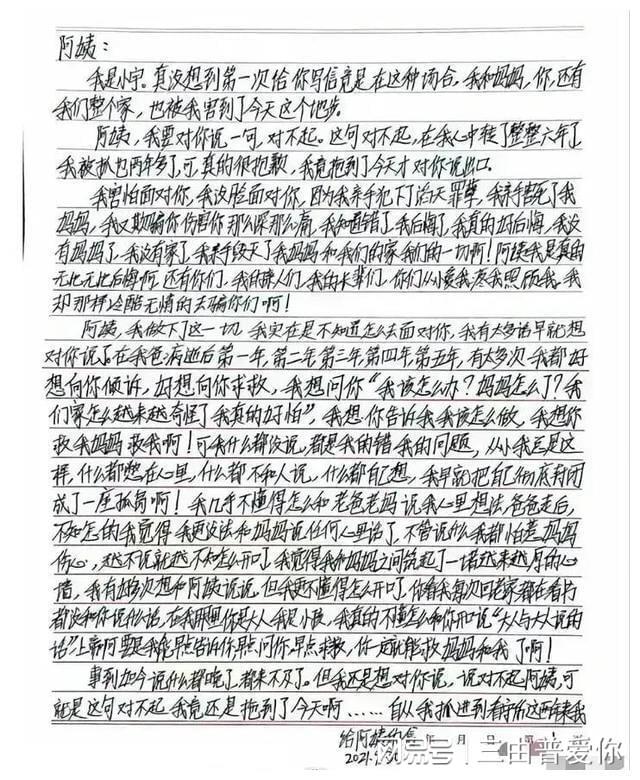 阿姨：
我是小宇。真没想到第一次给你写信竟是在这种场合。我和妈妈，你，还有
我们整个家，也被我害到了今天这个地步。
阿姨，我要对你说一句，对不起。这句对不起，在我心中挂了整整六年了
我被抓也两年多了，可真的很抱歉，我竟拖到了今天才对你说出口。
我害怕面对你，我没脸面对你，因为我亲手犯下了滔天罪孽，我亲手害死了我
妈妈，我又欺骗你伤害你那么深那么痛，我知道错了我后悔了，我真的好后悔，我没
有妈妈了，我没有家了，我亲手毁灭了我妈妈和我们的家我们的一切啊！阿姨我是真的
无比无比后悔啊，还有你们，我的亲人们，我的长辈们，你们从小爱我疼我照顾我，我
却那样冷酷无情的去骗你们啊！
阿姨，我做下了这一切，我实在是不知道怎么去面对你，我有太多话早就想
对你说了。在我爸病逝后第一年，第二年第三年，第四年第五年，有太多次我都好
想向你倾诉，好想向你求救，我想问你“我该怎么办？妈妈怎么了？我
们家怎么越来越奇怪了我真的好怕”，我想你告诉我我该怎么做，我想你
救我妈妈救我啊！可我什么都没说，都是我的错我的问题，从小我总是这
样，什么都憋在心里，什么都不和人说，什么都自己想，我早就把自己彻底封闭
成了一座孤岛啊！我几乎不懂得怎么和老爸老妈说我心里想法，爸爸走后，
不知怎的我觉得我更没法和妈妈说任何心里话了，不管说什么我都怕惹妈妈
伤心，越不说就越不知怎么开口了，我觉得我和妈妈之间筑起了一堵越来越厚的心
墙，我有好多次想和阿姨说说，但我更不懂得怎么开口了，你看我每次回老家都在看书
都没和你说什么话，在我眼里你是大人我是小孩，我真的不懂怎么和你开口说“大人与大人说的
话”上帝啊要是我能早点告诉你早点问你，早点求救，你一定就能救妈妈和我了啊！
事到如今说什么都晚了，都来不及了。但我还是想对你说，说对不起阿姨，可
就是这句对不起我竟还是拖到了今天啊……自从我抓进到看守所这两年来我
给阿姨的信 年 月 日 第 页
2021.9.30
搜狐号@三由普爱你